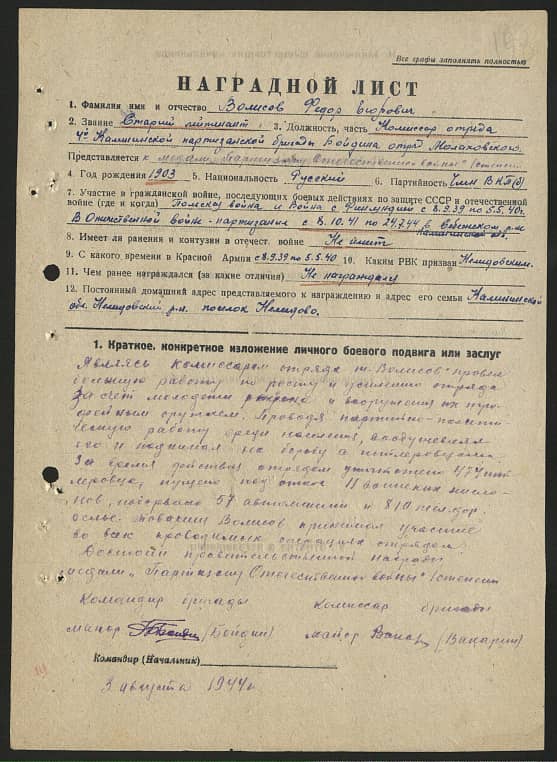 Все графы заполнять полностью
НАГРАДНОЙ ЛИСТ
1. Фамилия имя и отчество Волисов Федор Егорович
2. Звание Старший лейтенант 3. Должность, часть Комиссар отряда
4й Калининской партизанской бригады Бойдина отряд Малаховского.
Представляется к медали „Партизану Отечественной войны" I степени
4. Год рождения 1903 5. Национальность Русский 6. Партийность Член ВКП(б)
7. Участие в гражданской войне, последующих боевых действиях по защите СССР и отечественной
войне (где и когда) Польская война и Война с Финляндией с 8.9.39 по 5.5.40г.
В Отечественной войне - партизания с 8.10.41 по 24.7.44 в
8. Имеет ли ранения и контузии в отечест. войне Не имеет
9. С какого времени в Красной Армии с 8.9.39 по 5.5.40 10. Каким РВК призван Нелидовским.
11. Чем ранее награждался (за какие отличия) Не награждался
12. Постоянный домашний адрес представляемого к награждению и адрес его семьи Калининская
обл. Нелидовский р-н. поселок Нелидово.
1. Краткое, конкретное изложение личного боевого подвига или заслуг
Являясь комиссаром отряда т. Волисов провел
большую работу по росту и усилению отряда
за счет молодежи и вооружения их
оружием. Проводя партийно-полити-
ческую работу среди населения, воодушевлял
его и поднимал на борьбу с гитлеровцами.
За время действия отрядом уничтожено 474 гит-
леровца, пущено под откос 11 воинских эшело-
нов, подорвано 57 автомашин и 810 рельсов.
Товарищ Волисов принимал участие
во всех проводимых операциях отрядом.
Достоин правительственной награды
медали „Партизану Отечественной войны" I степени
Командир бригады комиссар бригады
майор (Бойдин) майор (Вакарин)
Командир (Начальник)
3 августа 1944г.